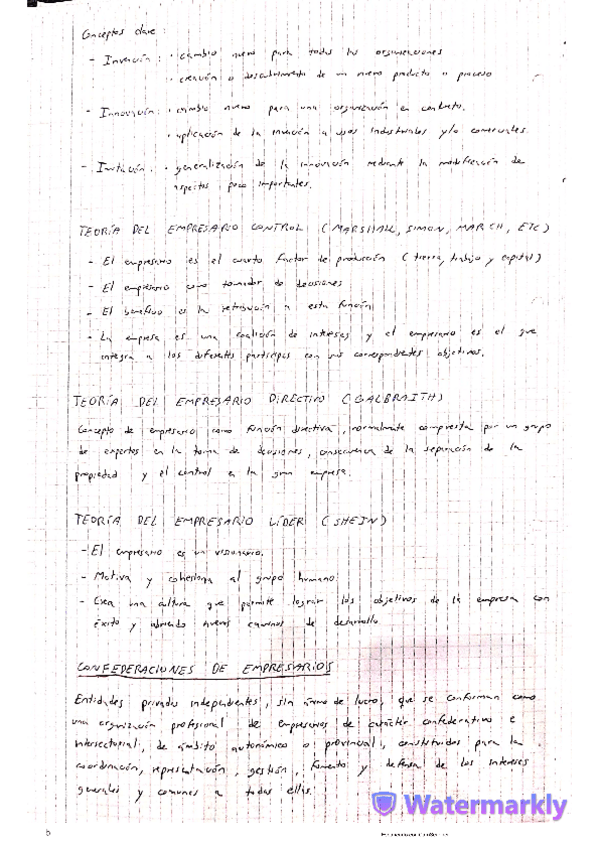 Conceptos clave:
- Invención: · cambio nuevo para todas las organizaciones
· creación o descubrimiento de un nuevo producto o proceso
- Innovación: · cambio nuevo para una organización en concreto.
· aplicación de la invención a usos industriales y/o comerciales.
- Imitación: · generalización de la innovación mediante la modificación de
aspectos poco importantes.
TEORÍA DEL EMPRESARIO CONTROL (MARSHALL, SIMON, MARCH, ETC)
- El empresario es el cuarto factor de producción (tierra, trabajo y capital)
- El empresario como tomador de decisiones
- El beneficio es la retribución a esta función
- La empresa es una coalición de intereses y el empresario es el que
integra a los diferentes partícipes con sus correspondientes objetivos.
TEORÍA DEL EMPRESARIO DIRECTIVO (GALBRAITH)
Concepto de empresario como función directiva, normalmente compuesta por un grupo
de expertos en la toma de decisiones, consecuencia de la separación de la
propiedad y el control en la gran empresa.
TEORÍA DEL EMPRESARIO LÍDER (SHEIN)
- El empresario es un visionario.
- Motiva y cohesiona al grupo humano
- Crea una cultura que permite lograr los objetivos de la empresa con
éxito y abriendo nuevos caminos de desarrollo
CONFEDERACIONES DE EMPRESARIOS
Entidades privadas independientes, sin ánimo de lucro, que se conforman como
una organización profesional de empresarios de carácter confederativo e
intersectorial, de ámbito autonómico o provincial, constituidas para la
coordinación, representación, gestión, fomento y defensa de los intereses
generales y comunes a todas ellas.
Watermarkly